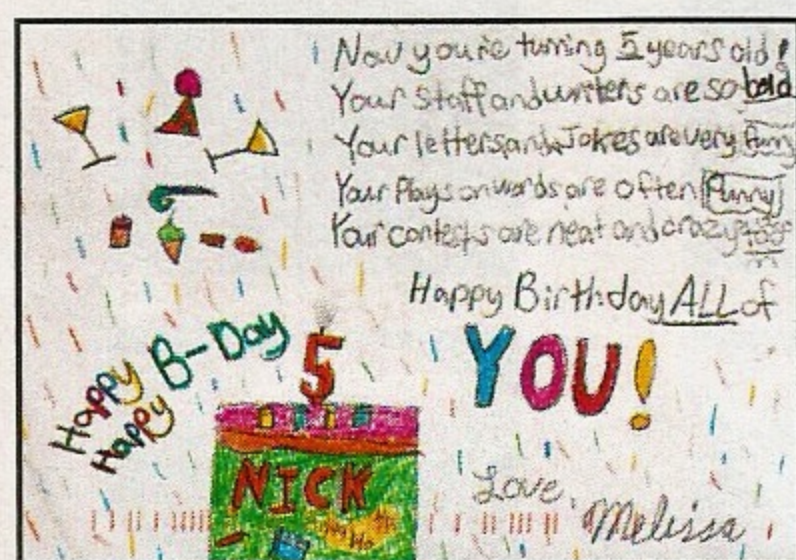 Now you're turning 5 years old!
Your staff and writers are so bold
Your letters and Jokes are very funny
Your Plays on words are often Punny
Your contests are neat and crazy too
Happy Birthday ALL of
YOU!
Happy
Happy
B-Day
5
NICK
Love,
Melissa